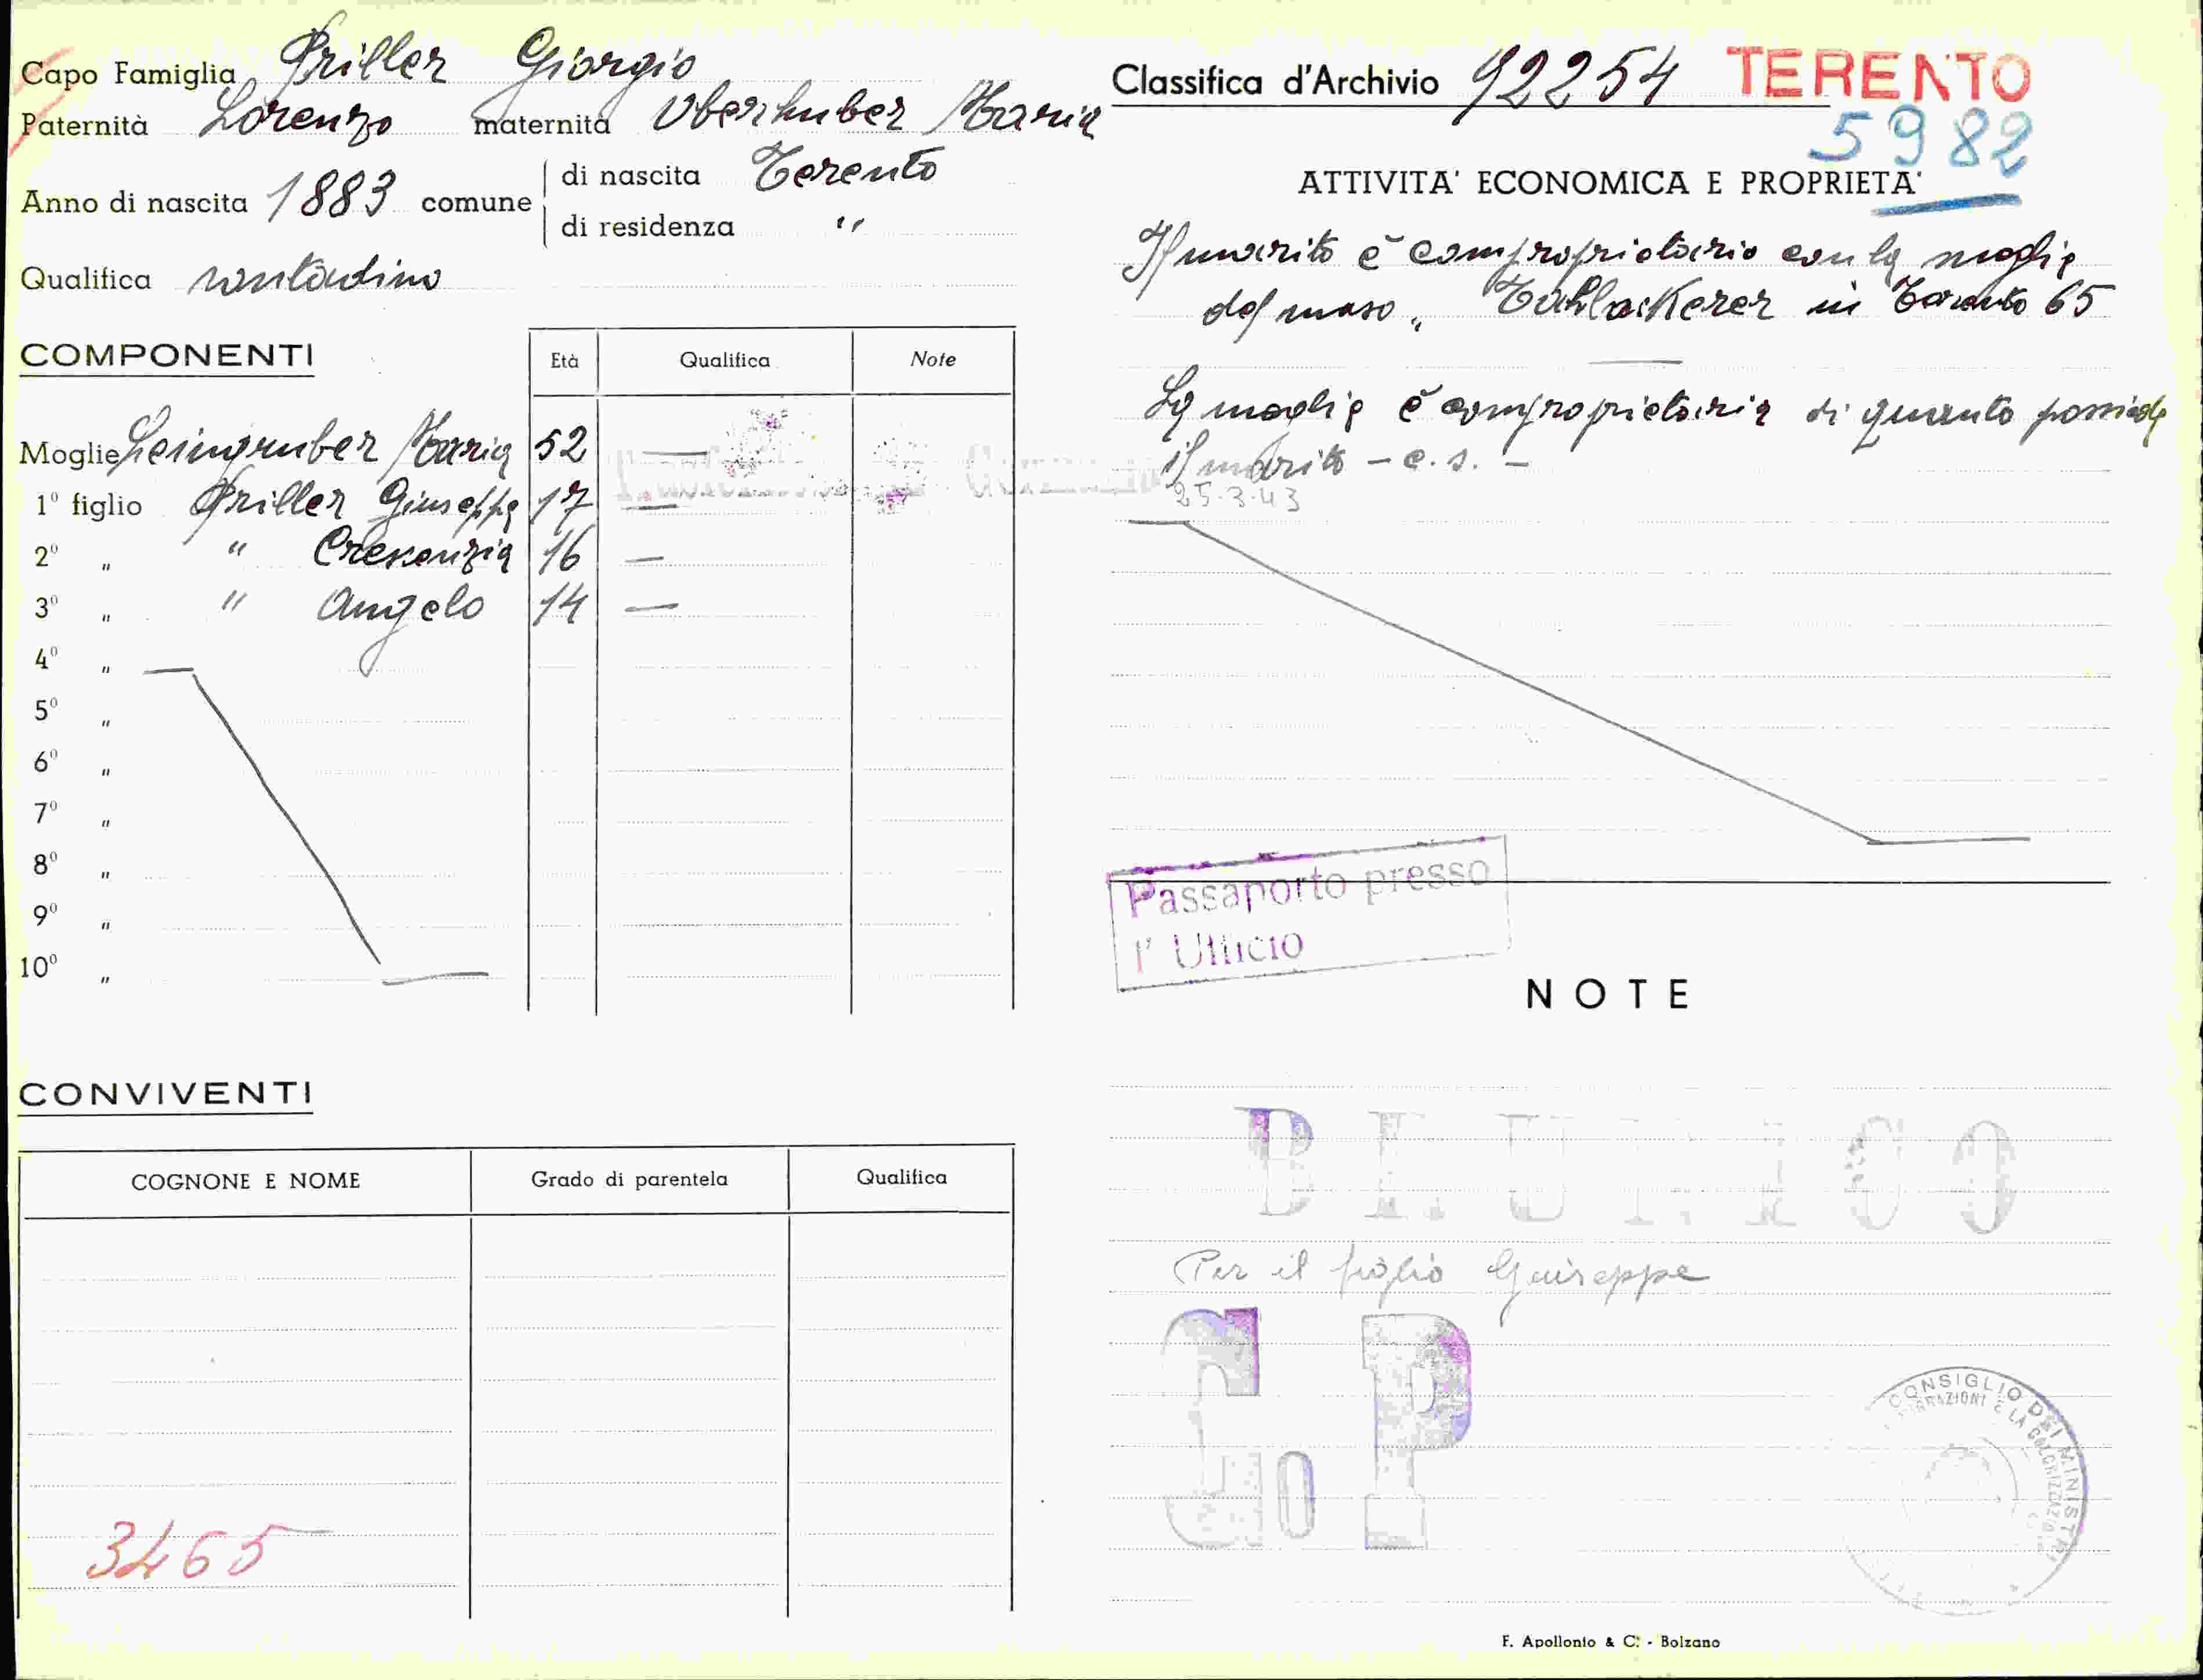 Capo Famiglia Priller Giorgio
Paternità Lorenzo maternità Oberhuber Maria
Anno di nascita 1883 comune di nascita Terento
di residenza "
Qualifica contadino
COMPONENTI Età Qualifica Note
Moglie Leimgruber Maria 52 —
1º figlio Priller Giuseppe 17 —
2º " " Cresenzia 16 —
3º " " Angelo 14 —
4º "
5º "
6º "
7º "
8º "
9º "
10º "
CONVIVENTI
COGNONE E NOME Grado di parentela Qualifica
3465
Classifica d'Archivio 92254 TERENTO
5982
ATTIVITA' ECONOMICA E PROPRIETA'
Il marito è comproprietario con la moglie
del maso " in Terento 65
La moglie è comproprietaria di quanto possiede
il marito - c. s. -
25-3-43
Passaporto presso
l' Ufficio
NOTE
BRUNICO
Per il figlio Giuseppe
Go P
CONSIGLIO DEI MINISTRI
F. Apollonio & C. - Bolzano